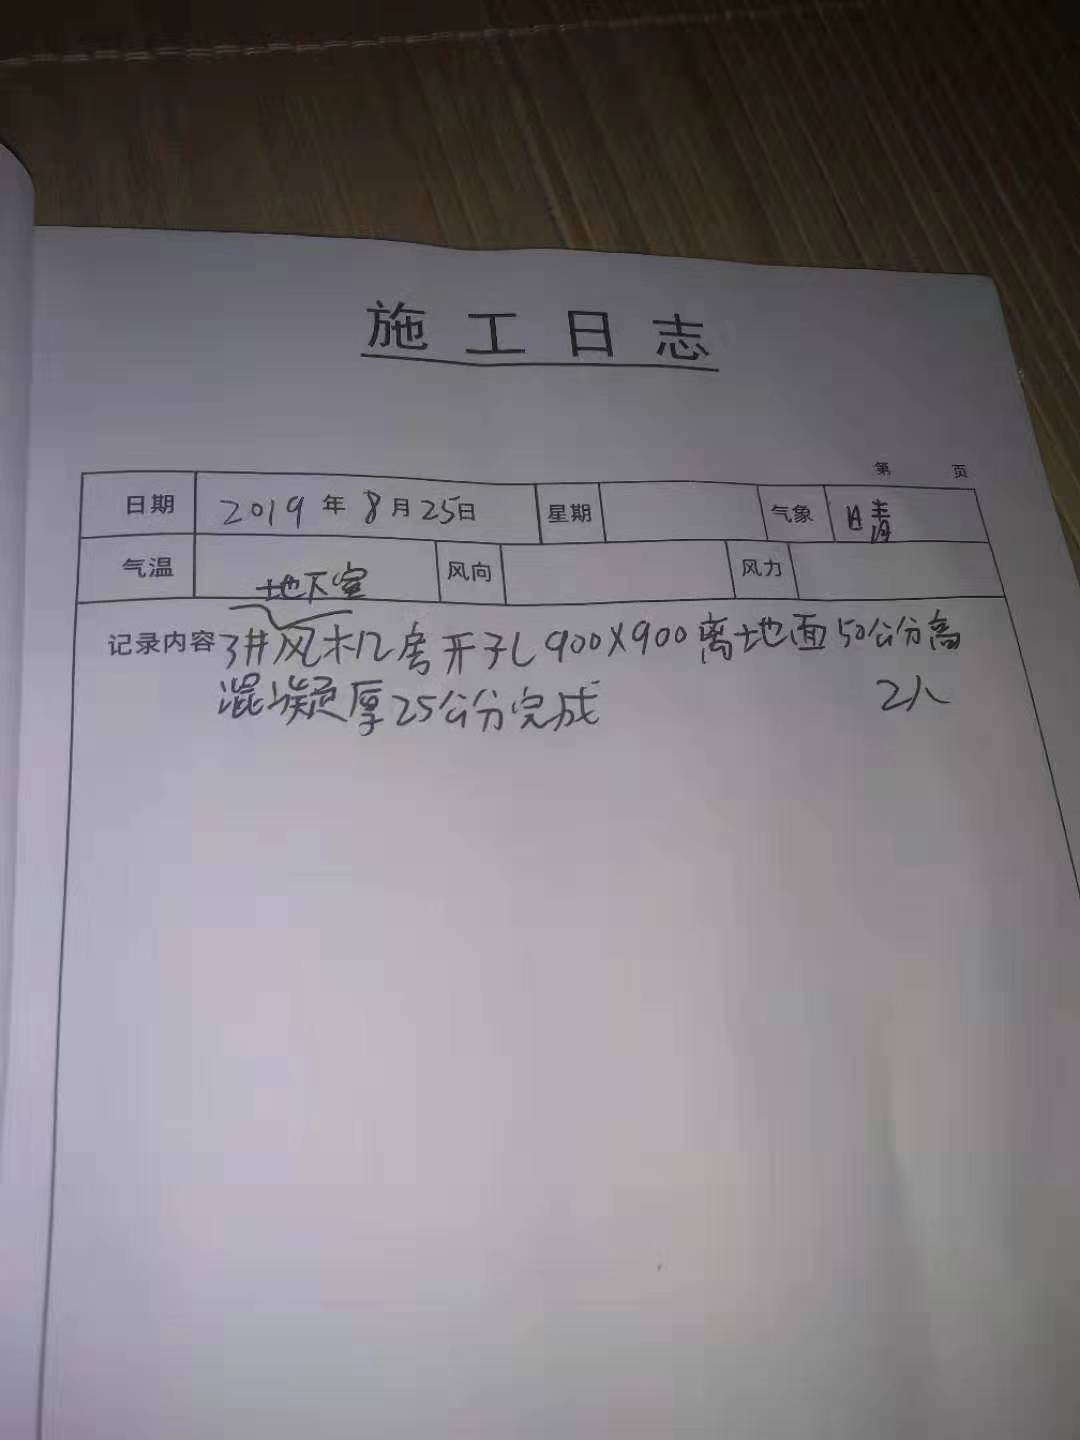 施工日志
第 页
日期 2019年8月25日 星期 气象 晴
气温 风向 风力
地下室
记录内容 3#风机房开孔900X900离地面50公分高
混凝厚25公分完成 2人